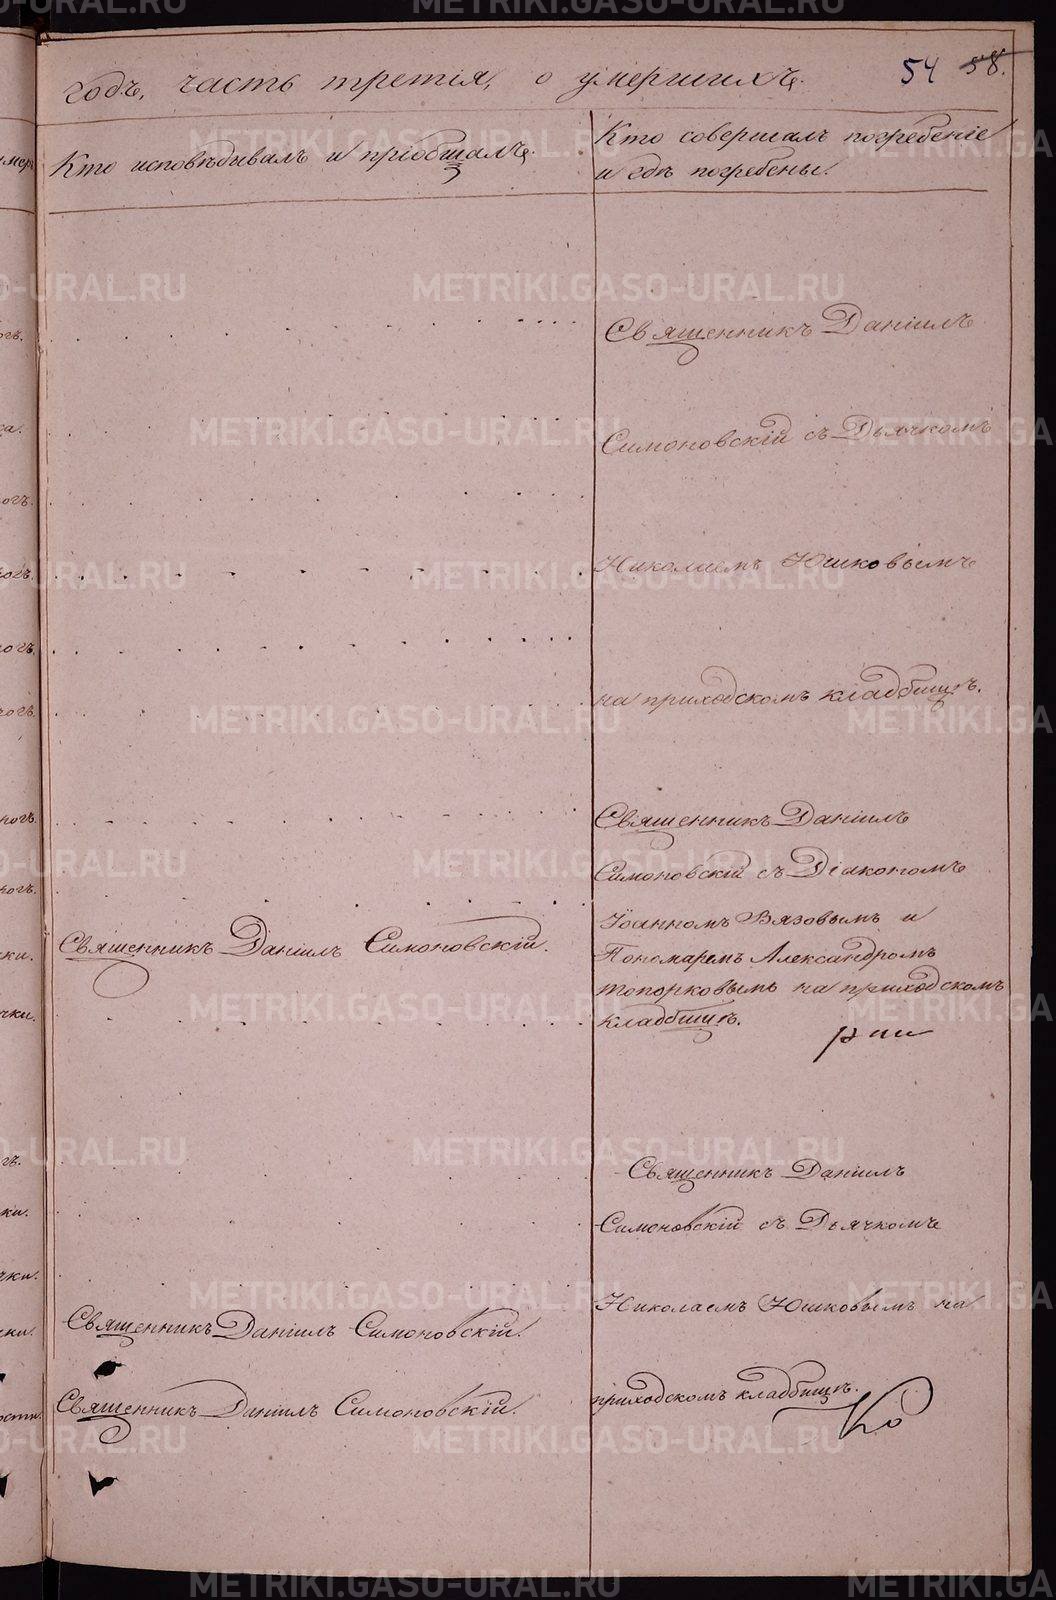 годъ, часть третія, о умершихъ.
54 58.
Кто исповѣдывалъ и пріобщалъ.
Кто совершалъ погребеніе
и гдѣ погребены.
Священникъ Даніилъ
Симоновскій съ Дьячкомъ
Николаемъ Юшковымъ
на приходскомъ кладбищѣ.
Священникъ Даніилъ
Симоновскій съ Діакономъ
Іоанномъ Вязовымъ и
Пономаремъ Александромъ
Топорковымъ на приходскомъ
кладбищѣ.
Священникъ Даніилъ Симоновскій.
Священникъ Даніилъ
Симоновскій съ Дьячкомъ
Николаемъ Юшковымъ на
приходскомъ кладбищѣ.
Священникъ Даніилъ Симоновскій.
Священникъ Даніилъ Симоновскій.
METRIKI.GASO-URAL.RU